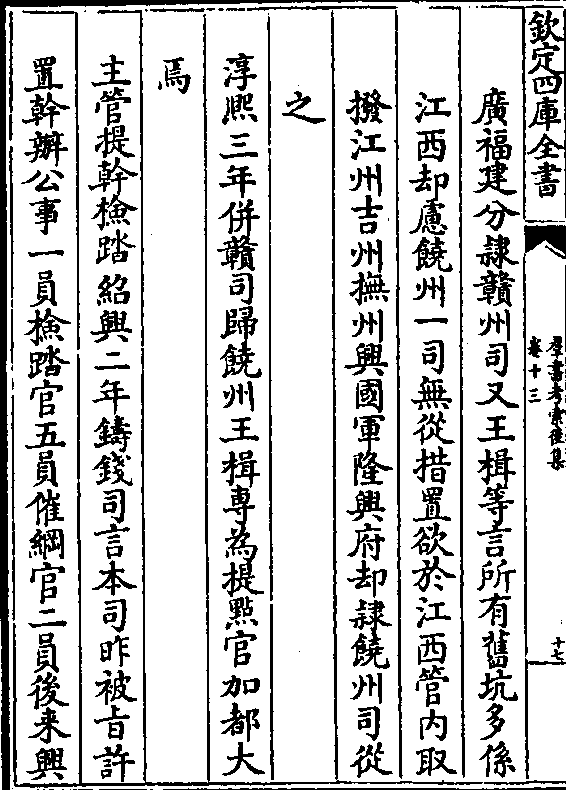 欽定四庫全書
羣書考索後集
卷十三
十七
廣福建分隸贛州司又王楫等言所有舊坑多係
江西却慮饒州一司無從措置欲於江西管内取
撥江州吉州撫州興國軍隆興府却隸饒州司從
之
淳熙三年併贛司歸饒州王楫専為提㸃官加都大
焉
主管提幹檢踏紹興二年鑄錢司言本司昨被㫖許
置幹辦公事一員檢踏官五員催綱官二員後来興